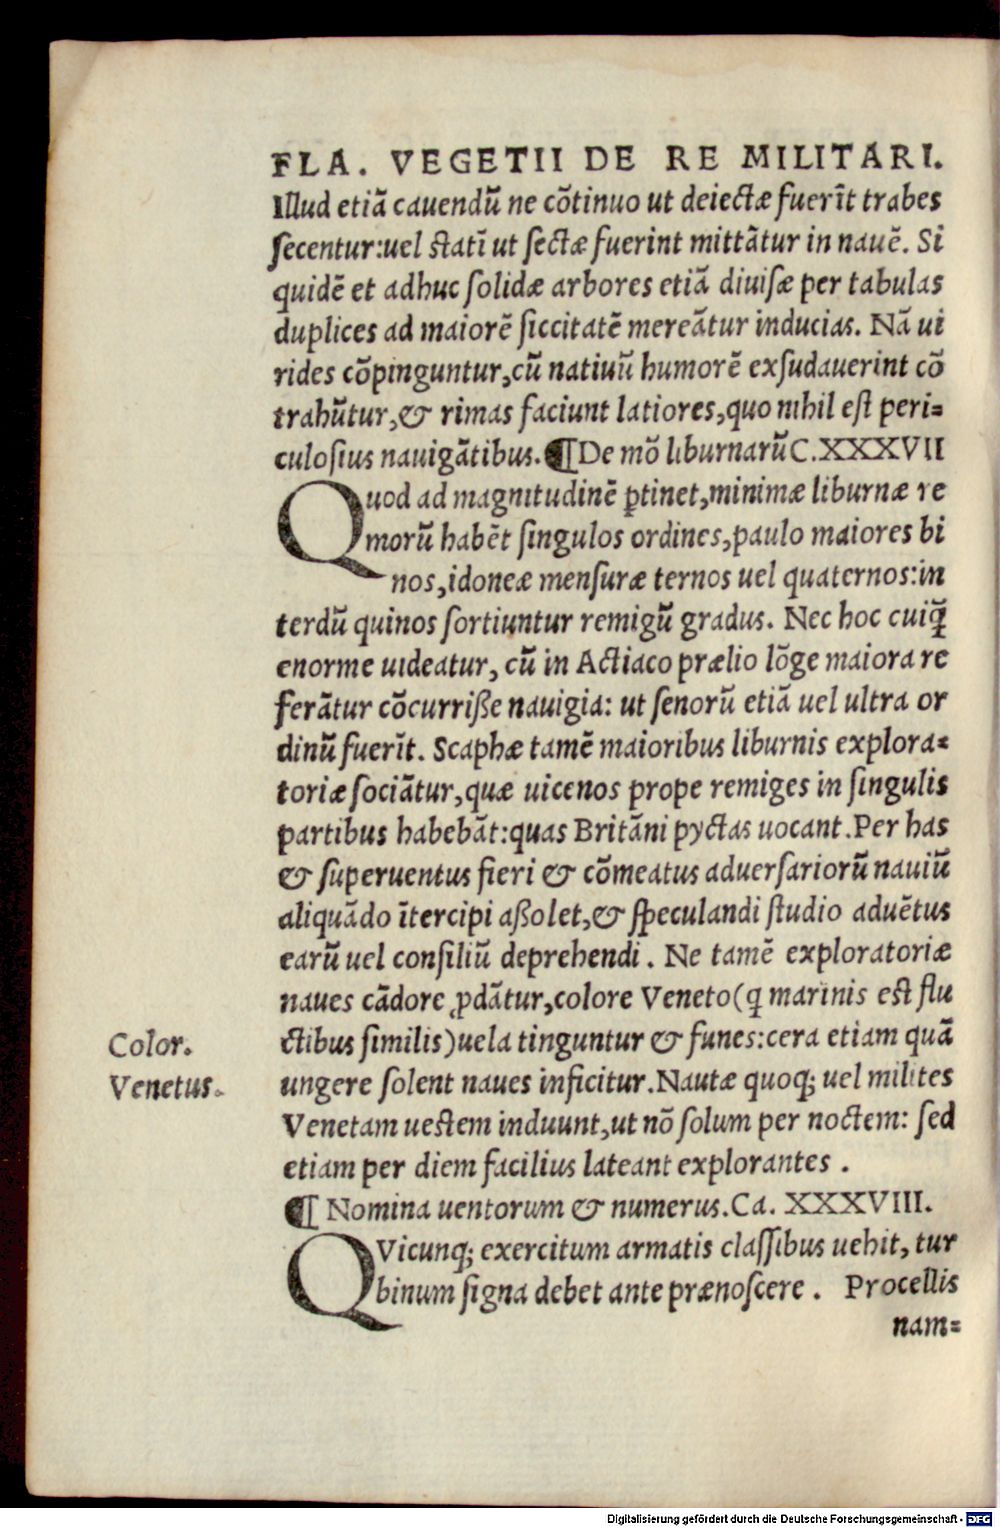 FLA. VEGETII DE RE MILITARI.
Illud etiā cauendū ne cōtinuo ut deiectæ fuerīt trabes
ſecentur:uel ſtatī ut ſectæ fuerint mittātur in nauē. Si
quidē et adhuc ſolidæ arbores etiā diuiſæ per tabulas
duplices ad maiorē ſiccitatē mereātur inducias. Nā ui
rides cōpinguntur,cū natiuū humorē exſudauerint cō
trahūtur,& rimas faciunt latiores,quo nihil eſt peri-
culoſius nauigātibus.¶De mō liburnarū C.XXXVII
Quod ad magnitudinē ꝑtinet,minimæ liburnæ re
morū habēt ſingulos ordines,paulo maiores bi
nos,idoneæ menſuræ ternos uel quaternos:in
terdū quinos ſortiuntur remigū gradus. Nec hoc cuiq̄
enorme uideatur, cū in Actiaco prælio lōge maiora re
ferātur cōcurriſſe nauigia: ut ſenorū etiā uel ultra or
dinū fuerīt. Scaphæ tamē maioribus liburnis explora-
toriæ ſociātur,quæ uicenos prope remiges in ſingulis
partibus habebāt:quas Britāni pyctas uocant.Per has
& ſuperuentus fieri & cōmeatus aduerſariorū nauiū
aliquādo ītercipi aſſolet,& ſpeculandi ſtudio aduētus
earū uel conſiliū deprehendi. Ne tamē exploratoriæ
naues cādore ꝓdātur,colore Veneto(q marinis eſt flu
ctibus ſimilis)uela tinguntur & funes:cera etiam quā
ungere ſolent naues inficitur.Nautæ quoq; uel milites
Venetam ueſtem induunt,ut nō ſolum per noctem: ſed
etiam per diem facilius lateant explorantes.
¶ Nomina uentorum & numerus.Ca. XXXVIII.
QVicunq; exercitum armatis claſſibus uehit, tur
binum ſigna debet ante prænoſcere. Procellis
nam-
Color.
Venetus.
Digitalisierung gefördert durch die Deutsche Forschungsgemeinschaft - DFG